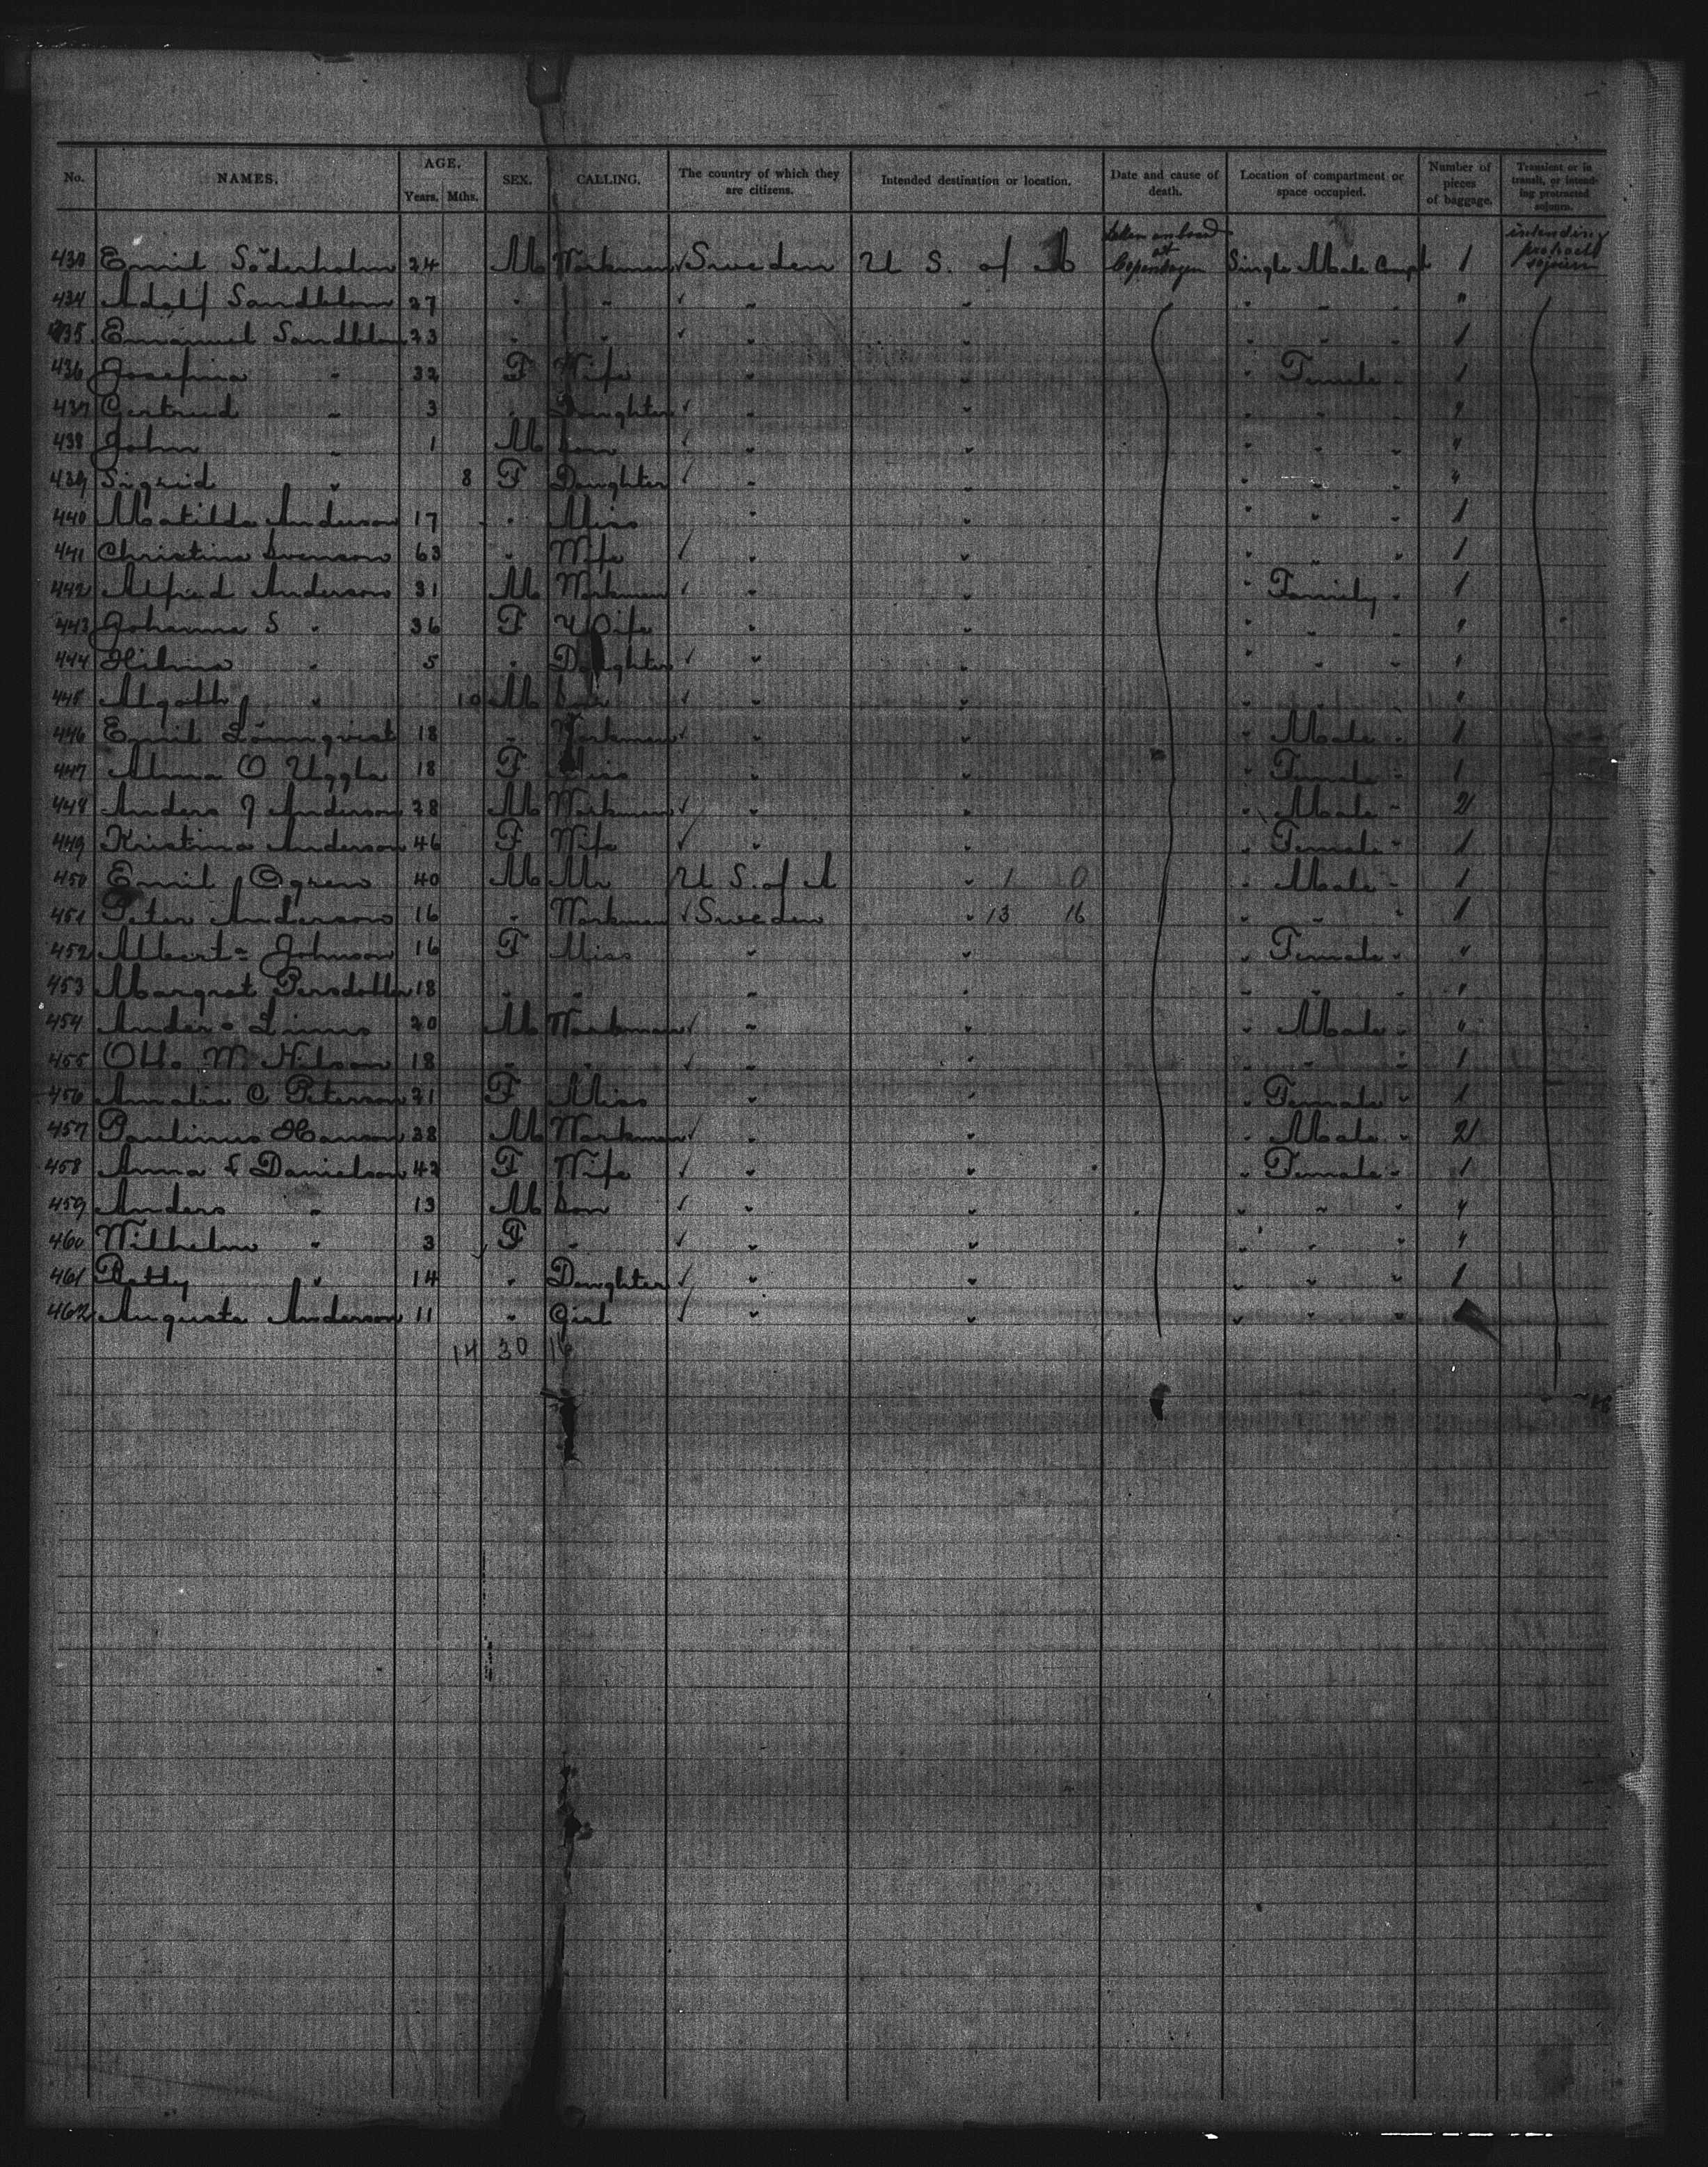 No. NAMES. AGE. Years. Mths. SEX. CALLING. The country of which they are citizens. Intended destination or location. Date and cause of death. Location of compartment or space occupied. Number of pieces of baggage. Transient or in transit, or intending protracted sojourn.
433 Emil Söderholm 24 M Workman ✓ Sweden U S. of A Taken on board at Copenhagen Single Male Compt 1 intending protract sojourn
434 Adolf Sandblom 27 " " ✓ " " " " " "
435 Emanuel Sandblom 33 " " ✓ " " " " " 1
436 Josefina " 32 F Wife " " " Female " 1
437 Gertrud " 3 " Daughter ✓ " " " " "
438 John " 1 M Son ✓ " " " " " "
439 Sigrid " 8 F Daughter ✓ " " " " " "
440 Matilda Anderson 17 " Miss " " " " " 1
441 Christina Svenson 63 " Wife ✓ " " " " " 1
442 Alfred Anderson 31 M Workman ✓ " " " Family " 1
443 Johanna S " 36 F Wife " " " " " "
444 Hilma " 5 " Daughter ✓ " " " " " "
445 Algoth " 10 M Son ✓ " " " " " "
446 Emil Lönnqvist 18 " Workman ✓ " " " Male " 1
447 Alma O Uggla 18 F Miss " " " Female " 1
448 Anders J Anderson 28 M Workman ✓ " " " Male " 2
449 Kristina Anderson 46 F Wife ✓ " " " Female " 1
450 Emil Ogren 40 M Mr U S. of A " 1 0 " Male " 1
451 Peter Anderson 16 " Workman ✓ Sweden " 13 16 " " " 1
452 Alberta Johnson 16 F Miss " " " Female " "
453 Margret Persdotter 18 " " " " " " " "
454 Anders Linus 20 M Workman ✓ " " " Male " "
455 Otto W. Nilson 18 " " ✓ " " " " " 1
456 Amalia C Peterson 21 F Miss " " " Female " 1
457 Paulinus Hanson 38 M Workman ✓ " " " Male " 2
458 Anna L Danielson 42 F Wife ✓ " " " Female " 1
459 Anders " 13 M Son ✓ " " " " " "
460 Wilhelm " 3 F " ✓ " " " " " "
461 Betty " 14 " Daughter ✓ " " " " " 1
462 Augusta Anderson 11 " Girl ✓ " " " " "
14 30 16